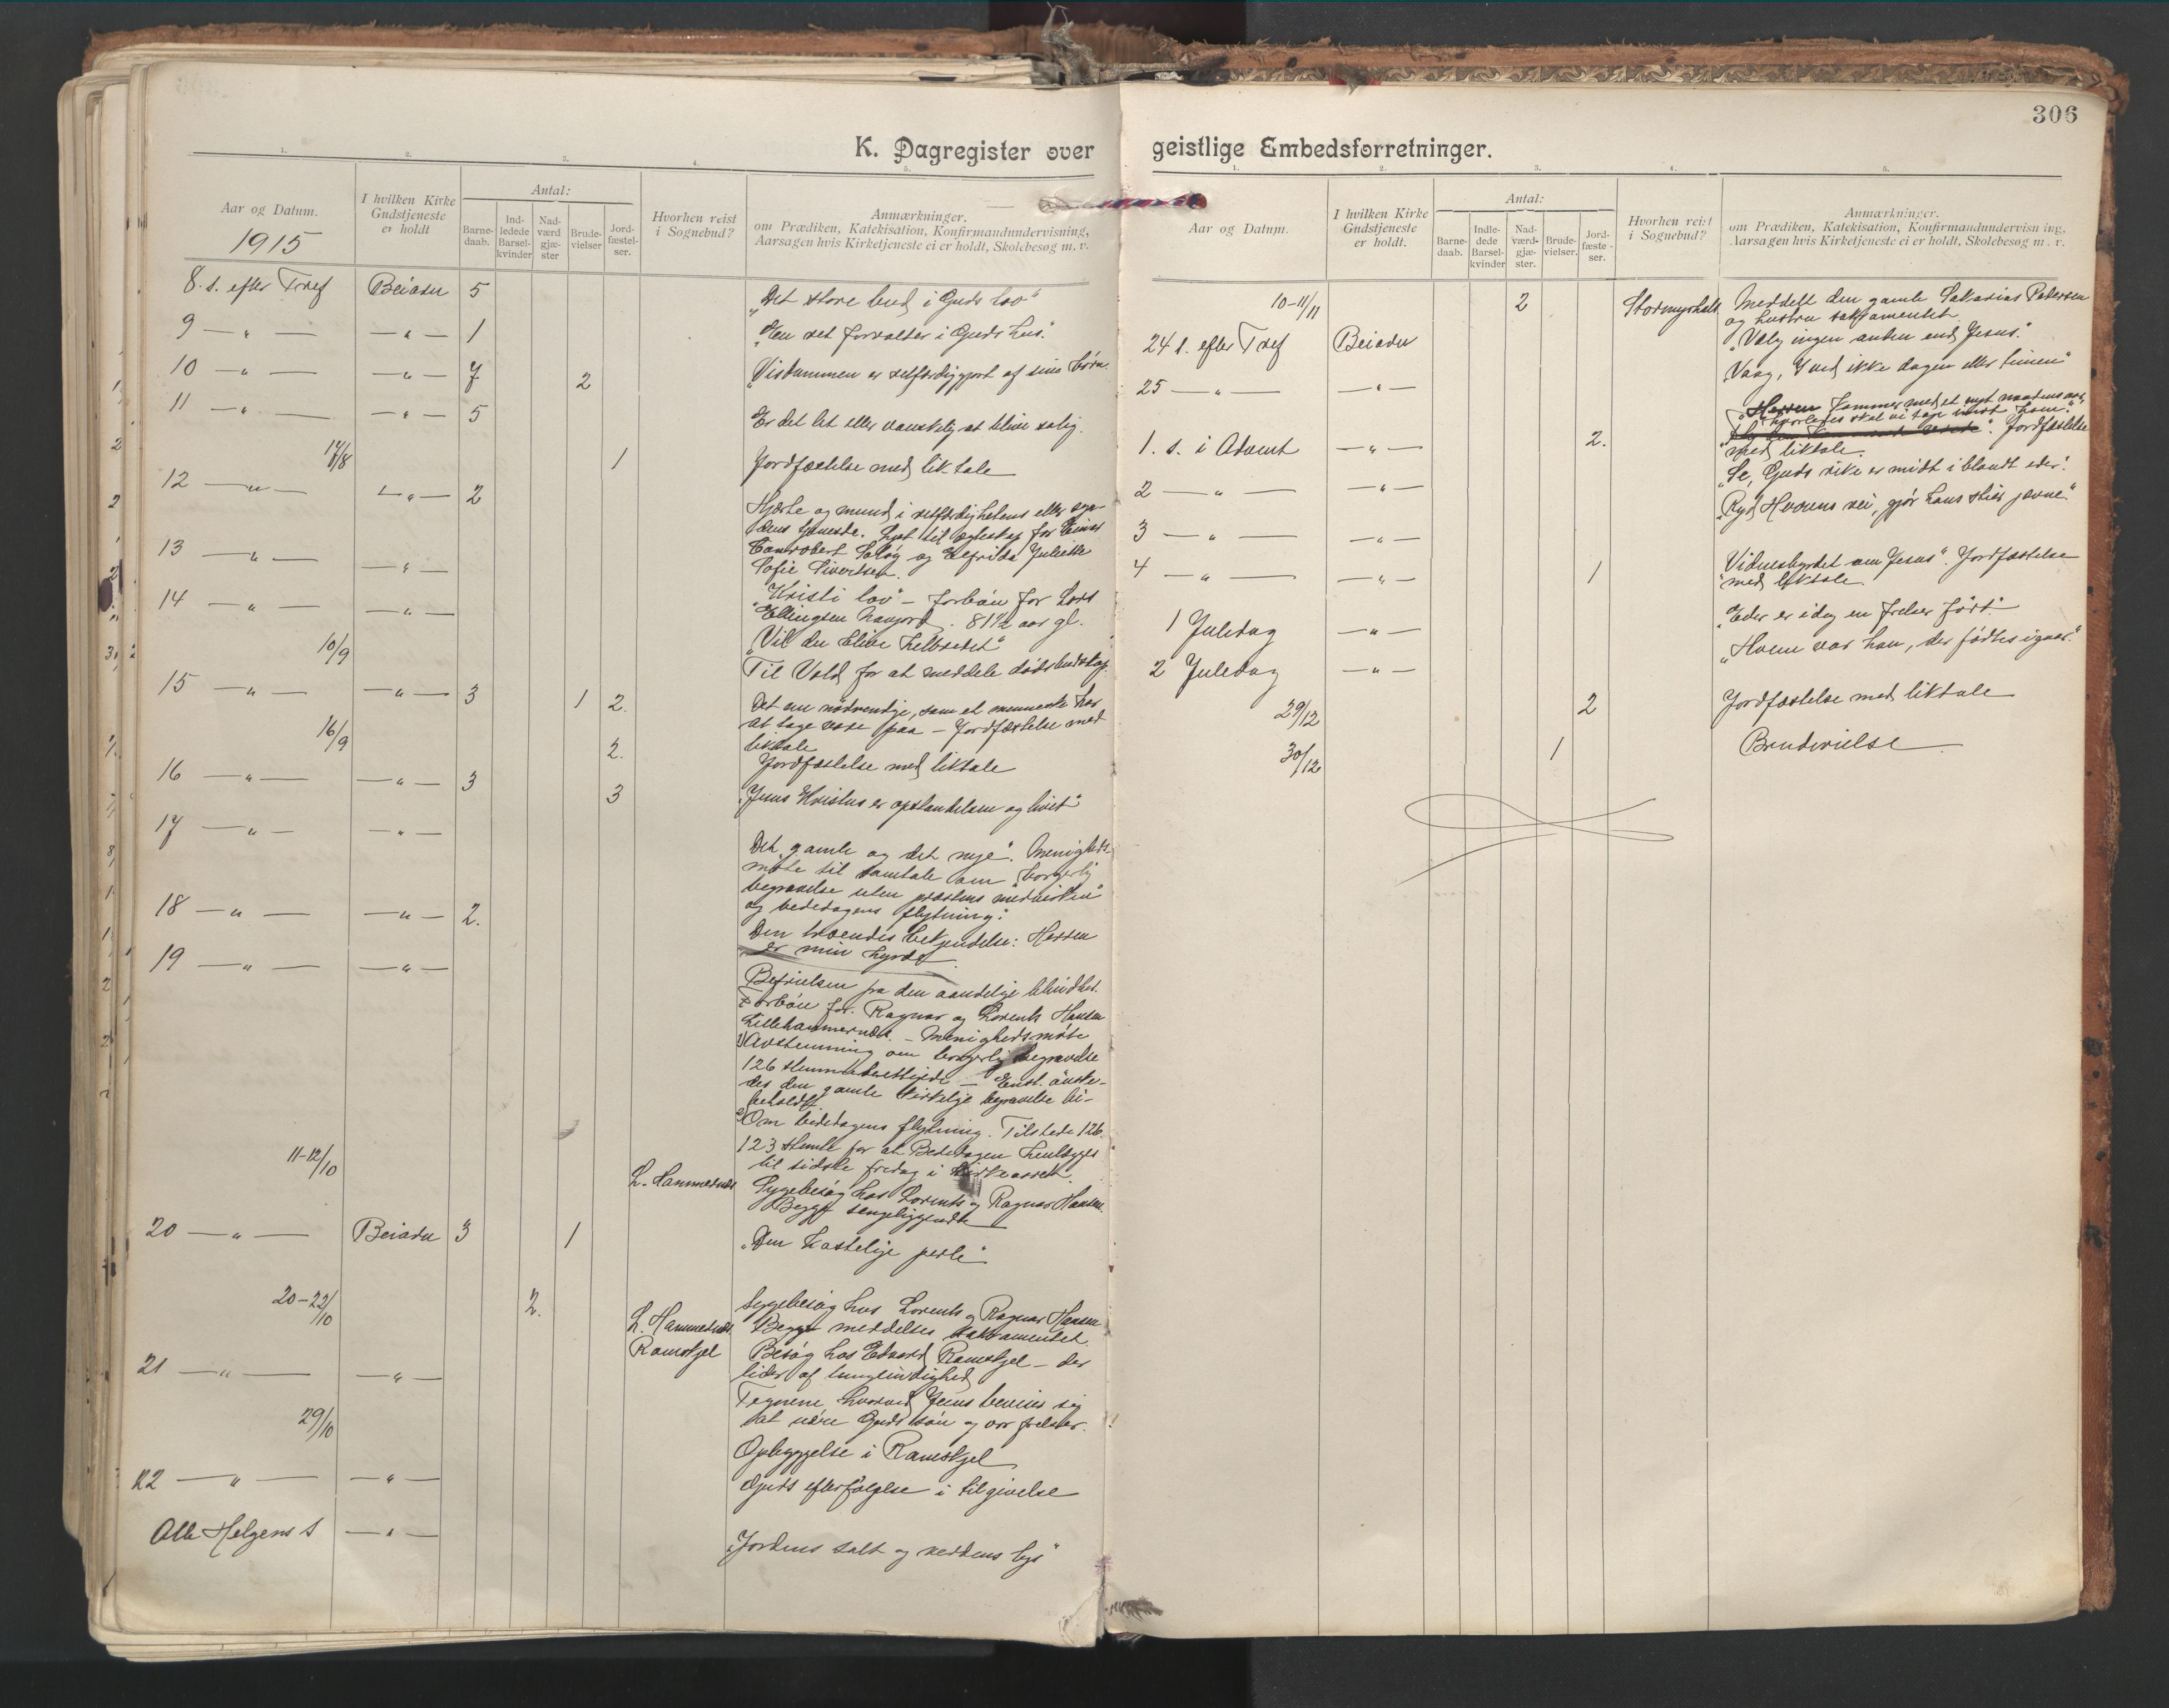 306
K. Dagregister over geistlige Embedsforretninger.
1. 2. 3. 4. 5.
Aar og Datum.
1915
I hvilken Kirke Gudstjeneste er holdt
Antal:
Barne-daab.
Ind-ledede Barsel-kvinder
Nad-værd gjæ-ster
Brude-vielser
Jord-fæstel-ser.
Hvorhen reist i Sognebud?
Anmærkninger.
om Prædiken, Katekisation, Konfirmandundervisning,
Aarsagen hvis Kirketjeneste ei er holdt, Skolebesøg m. v.
8. s. efter Tref Beiarn 5 "Det store bud i Guds lov"
9 — " — — " — 1 "En ret forvalter i Guds hus."
10 — " — — " — 7 2 "Visdommen er retfærdiggjort af sine børn.
11 — " — — " — 5 Er det let eller vanskelig at blive salig.
17/8 1 Jordfæstelse med liktale
12 — " — — " — 2 Hjerte og mund i retfærdighetens eller syn-
dens tjeneste. Lyst til egteskap for Einar
og Elfrida Juliette
Sofie Sivertsen.
13 — " — — " — "Kristi lov" – Forbøn for Lars
Ellingsen Navjord. 81½ aar gl.
14 — " — — " — "Vil du blive helbredet"
10/9 Til Vold for at meddele dødsbudskap.
15 — " — — " — 3 1 2. Det ene nødvendige, som et menneske har
at tage vare paa – Jordfæstelse med
liktale
16/9 2. Jordfæstelse med liktale
16 — " — — " — 3 3 "Jesus Kristus er opstandelsen og livet"
17 — " — — " — Det "gamle og det nye". Menigheds-
møte til samtale om "borgerlig
begravelse uten prestens medvirken"
og bededagens flytning."
18 — " — — " — 2. Den troendes bekjendelse: Herren
er min hyrde.
19 — " — — " — Befrielsen fra den aandelige blindhet.
Forbøn for Ragnar og Lorents Hansen
Lillehammernæs. – Menighedsmøte
1) Avstemning om borgerlig begravelse
126 stemmeberettigede – Enst. ønske-
des den gamle kirkelige begravelse bi-
beholdt.
2) Om bededagens flytning. Tilstede 126.
123 stemte for at Bededagen henlægges
til sidste fredag i kirkeaaret.
11-12/10 L. Hammernæs Sygebesøg hos Lorents og Ragnar Hansen.
Begge sengeliggende
20 — " — Beiarn 3 1 "Den kostelige perle"
20-22/10 2. L. Hammernæs Sygebesøg hos Lorents og Ragnar Hansen
Begge meddeltes sakramentet.
Ramskjel Besøg hos Edvard Ramskjel – der
lider af tungsindighed
21 — " — — " — Tegnene hvorved Jesus beviser sig
at være Guds søn og vor frelser.
29/10 Opbyggelse i Ramskjel
22 — " — — " — Guds efterfølgelse i tilgivelse
Alle Helgens s — " — "Jordens salt og verdens lys"
1. 2. 3. 4. 5.
Aar og Datum.
I hvilken Kirke Gudstjeneste er holdt.
Antal:
Barne-daab.
Indle-dede Barsel-kvinder
Nad-værd-gjæ-ster.
Brude-vielser.
Jord-fæste-ser.
Hvorhen reist i Sognebud?
Anmærkninger.
om Prædiken, Katekisation, Konfirmandundervisning,
Aarsagen hvis Kirketjeneste ei er holdt, Skolebesøg m. v.
10-11/11 2 Meddelt den gamle Sakarias Petersen
og hustru sakramentet.
24 s. efter Tref Beiarn "Vælg ingen anden end Jesus."
25 — " — — " — "Vaag, I ved ikke dagen eller timen"
1. s. i Advent — " — 2. "Herren kommer med et nyt naadens aar,
hvorledes skal vi tage imot ham."
Jordfæstelse
med liktale.
2 — " — — " — "Se, Guds rike er midt i blandt eder".
3 — " — — " — "Ryd Herrens vei, gjør hans stier jevne."
4 — " — — " — 1 Vidnesbyrdet om Jesus". Jordfæstelse
med liktale.
1 Juledag — " — "Eder er idag en frelser født"
2 Juledag — " — "Hvem var han, der fødtes igaar."
29/12 2 Jordfæstelse med liktale
30/12 1 Brudevielse.